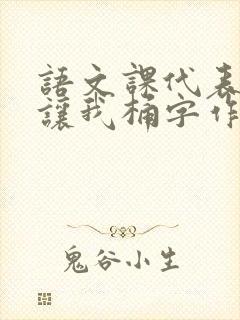 語文課代表
讓我桶字作
鬼谷小生